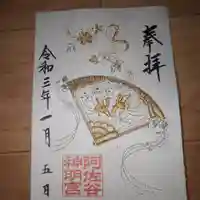 奉拝
令和三年一月五日
阿佐谷
神明宮